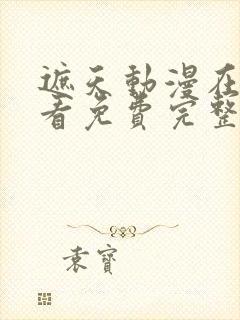 遮天動漫在
看免費完整
袁寶